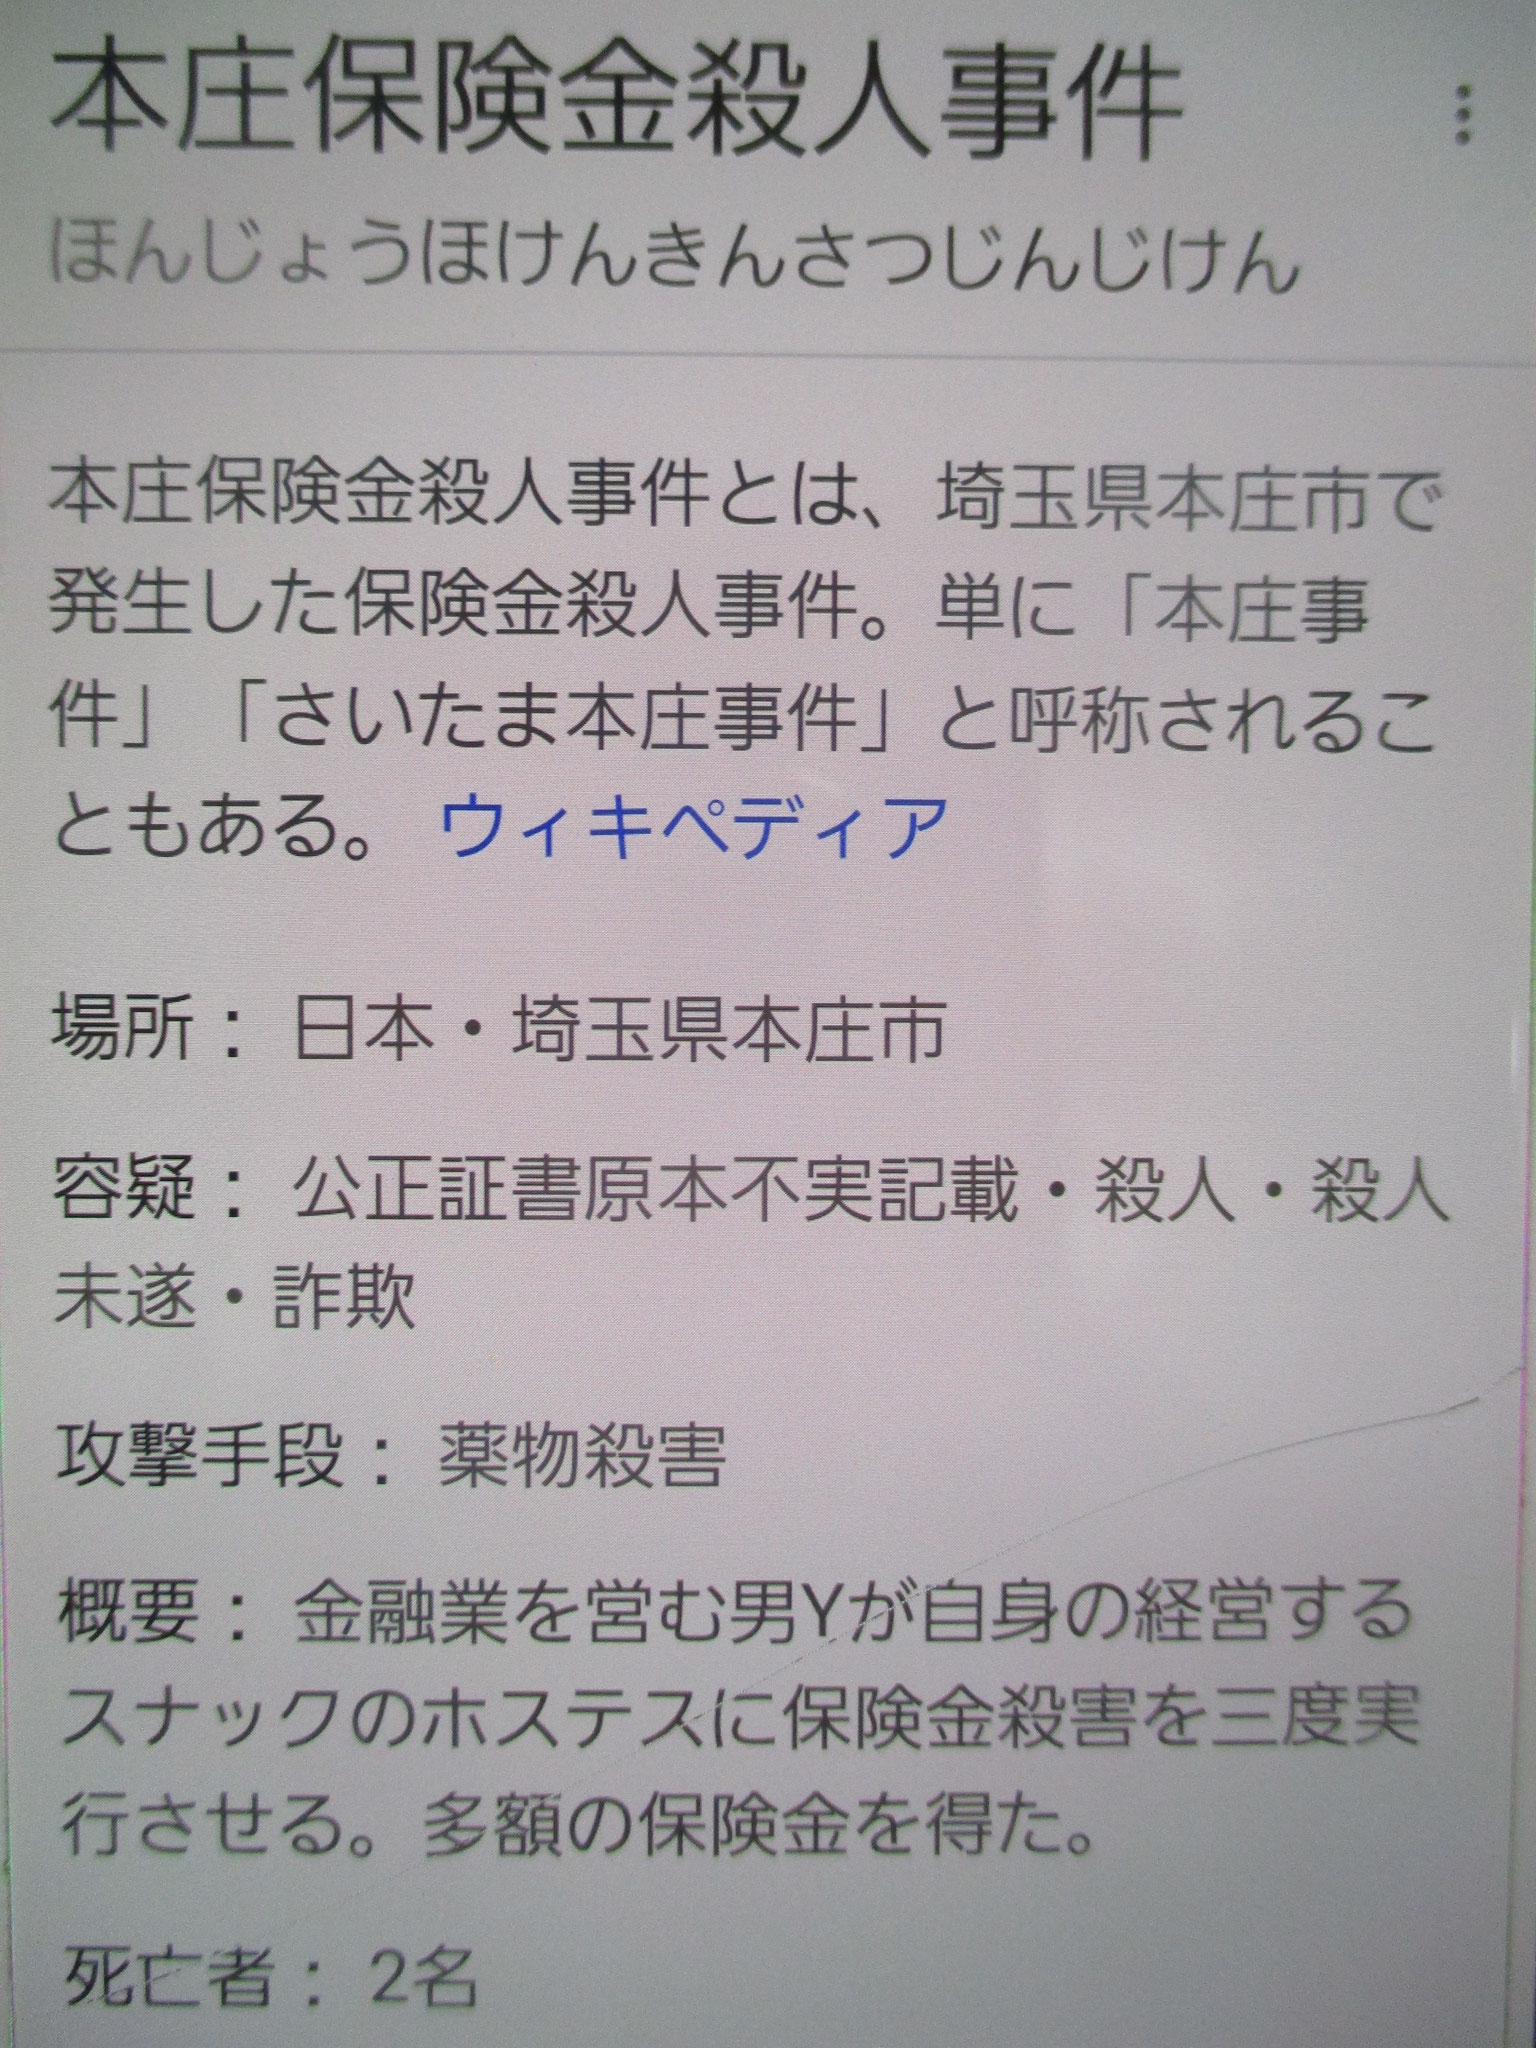 本庄保険金殺人事件
ほんじょうほけんきんさつじんじけん
本庄保険金殺人事件とは、埼玉県本庄市で
発生した保険金殺人事件。単に「本庄事
件」「さいたま本庄事件」と呼称されるこ
ともある。 ウィキペディア
場所： 日本・埼玉県本庄市
容疑： 公正証書原本不実記載・殺人・殺人
未遂・詐欺
攻撃手段： 薬物殺害
概要： 金融業を営む男Yが自身の経営する
スナックのホステスに保険金殺害を三度実
行させる。多額の保険金を得た。
死亡者： 2名